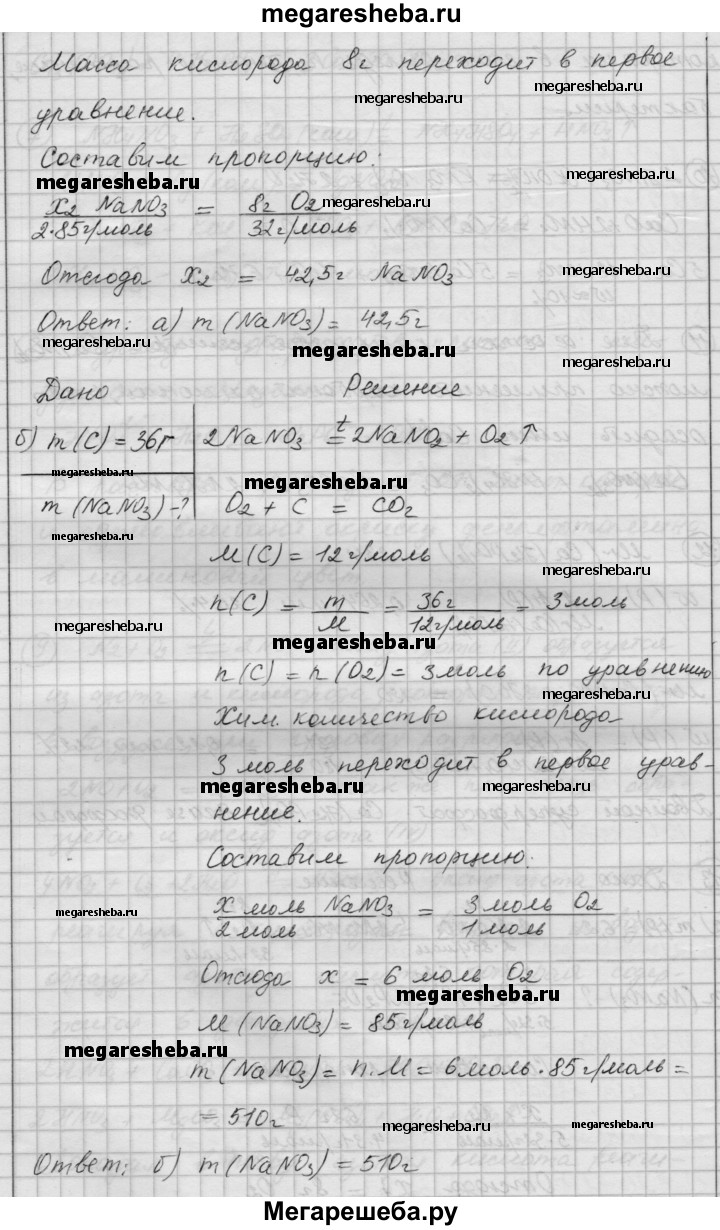 megaresheba.ru
Масса кислорода 8г переходит в первое
megaresheba.ru megaresheba.ru
уравнение.
Составим пропорцию:
megaresheba.ru megaresheba.ru
x г NaNO3 / 2·85г/моль = 8г O2 / 32г/моль
megaresheba.ru
Отсюда x г = 42,5г NaNO3
megaresheba.ru
Ответ: а) m (NaNO3) = 42,5г
megaresheba.ru megaresheba.ru megaresheba.ru
Дано Решение
б) m (C) = 36г 2NaNO3 t= 2NaNO2 + O2↑
megaresheba.ru megaresheba.ru megaresheba.ru
m (NaNO3) -? O2 + C = CO2
megaresheba.ru
M (C) = 12г/моль
megaresheba.ru
n (C) = m / M = 36г / 12г/моль = 3моль
megaresheba.ru megaresheba.ru
n (C) = n (O2) = 3моль по уравнению
megaresheba.ru
Хим. количество кислорода
3 моль переходит в первое урав-
megaresheba.ru megaresheba.ru
нение.
Составим пропорцию:
x моль NaNO3 / 2моль = 3моль O2 / 1моль
megaresheba.ru megaresheba.ru
Отсюда x = 6 моль O2
megaresheba.ru
M (NaNO3) = 85г/моль
megaresheba.ru
m (NaNO3) = n·M = 6моль·85г/моль =
= 510г
megaresheba.ru megaresheba.ru
Ответ: б) m (NaNO3) = 510г
Мегарешеба.ру